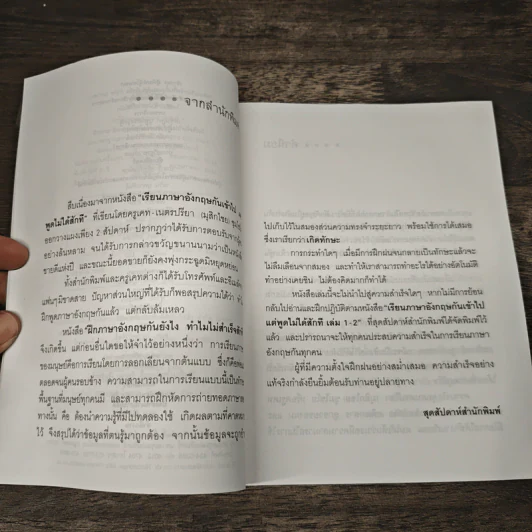 จากสำนักพิมพ์
สืบเนื่องมาจากหนังสือ "เรียนภาษาอังกฤษกันเข้าไป
พูดไม่ได้สักที" ที่เขียนโดยครูเคท-เนตรปรียา (มุสิกไชย) ชุมไชโย
ออกวางแผงเพียง 2 สัปดาห์ ปรากฏว่าได้รับการตอบรับจาก
อย่างล้นหลาม จนได้รับการกล่าวขวัญขนานนามว่าเป็นหนังสือ
ขายดีแห่งปี และขณะนี้ยอดขายก็ยังคงพุ่งกระฉูดมิหยุดหย่อน
ทั้งสำนักพิมพ์และครูเคทต่างก็ได้รับโทรศัพท์และอีเมล์
แฟนๆมิขาดสาย ปัญหาส่วนใหญ่ที่ได้รับก็พอสรุปความได้ว่า
ฝึกพูดภาษาอังกฤษกันแล้ว แต่กลับล้มเหลว
หนังสือ "ฝึกภาษาอังกฤษกันยังไง ทำไมไม่สำเร็จสักที"
จึงเกิดขึ้น แต่ก่อนอื่นใดขอให้จำไว้อย่างหนึ่งว่า การเรียนภาษา
ของมนุษย์คือการเรียนโดยการลอกเลียนจากต้นแบบ ซึ่งก็คือ
ตลอดจนผู้คนรอบข้าง ความสามารถในการเรียนแบบนี้เป็นทักษะ
พื้นฐานที่มนุษย์ทุกคนมี และสามารถฝึกหัดการถ่ายทอดภาษา
ทางนั้น คือ ต้องนำความรู้ที่มีไปทดลองใช้ เกิดผลตามที่คาดหมาย
ไว้ จึงสรุปได้ว่าข้อมูลที่ตนรู้มาถูกต้อง จากนั้นข้อมูลจะถูกนำ
ไปเก็บไว้ในสมองส่วนความทรงจำระยะยาว พร้อมใช้การได้เสมอ
ซึ่งเราเรียกว่าเกิดทักษะ
การกระทำใดๆ เมื่อมีการฝึกฝนจนกลายเป็นทักษะแล้วจะ
ไม่ลืมเลือนจากสมอง และทำให้เราสามารถทำอะไรได้อย่างอัตโนมัติ
ทำอย่างเคยชิน ไม่ต้องคิดมากก็ทำได้
หนังสือเล่มนี้จะไม่นำไปสู่ความสำเร็จใดๆ หากไม่มีการย้อน
กลับไปอ่านและฝึกปฏิบัติตามหนังสือ "เรียนภาษาอังกฤษกันเข้าไป
แต่พูดไม่ได้สักที เล่ม 1-2" ที่สุดสัปดาห์สำนักพิมพ์ได้จัดพิมพ์ไว้
แล้ว และปรารถนาจะให้ทุกคนประสบความสำเร็จในการเรียนภาษา
อังกฤษกันทุกคน
ผู้ที่มีความตั้งใจฝึกฝนอย่างสม่ำเสมอ ความสำเร็จอย่าง
แท้จริงกำลังยืนยิ้มต้อนรับท่านอยู่ปลายทาง
สุดสัปดาห์สำนักพิมพ์